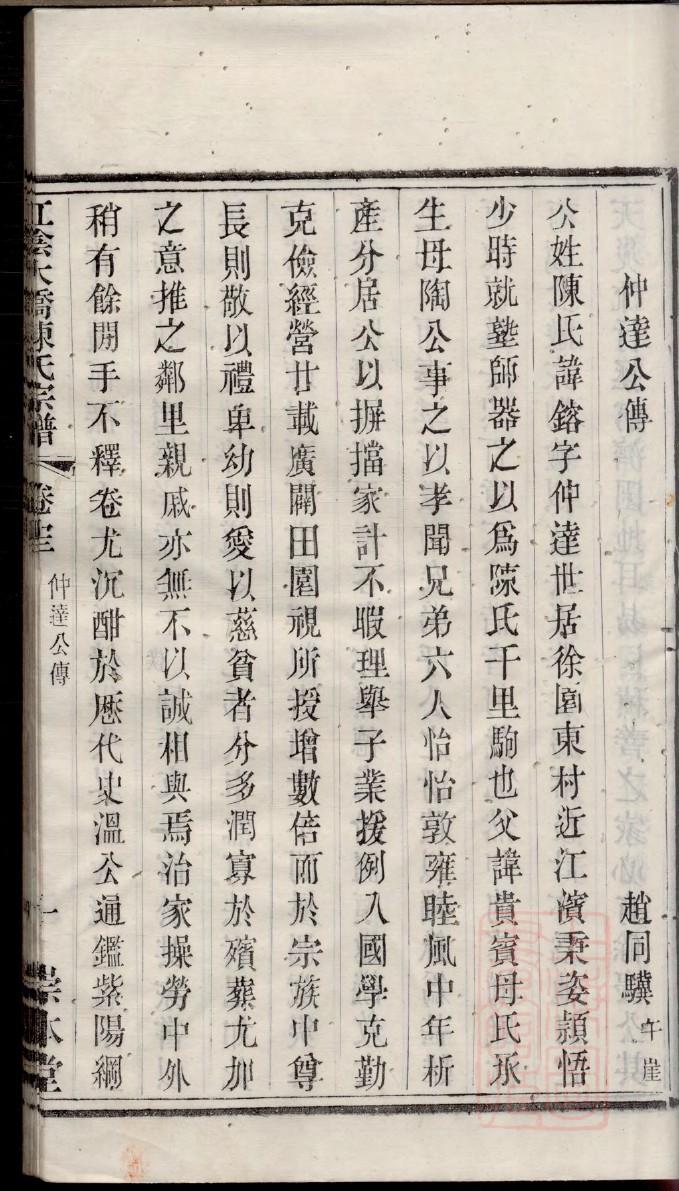 仲達公傳 趙同驥 午崖
公姓陳氏諱鎔字仲達世居徐園東村近江濱秉姿頴悟
少時就塾師器之以爲陳氏千里駒也父諱貴賓母氏承
生母陶公事之以孝聞兄弟六人怡怡敦雍睦風中年析
產分居公以摒擋家計不暇理舉子業援例入國學克勤
克儉經營廿載廣闢田園視所授增數倍而於宗族中尊
長則敬以禮卑幼則愛以慈貧者分多潤寡於殯葬尤加
之意推之鄰里親戚亦無不以誠相與焉治家操勞中外
稍有餘閒手不釋卷尤沉酣於歷代史溫公通鑑紫陽綱
江陰大橋陳氏宗譜 卷 仲達公傳 一 宗本堂